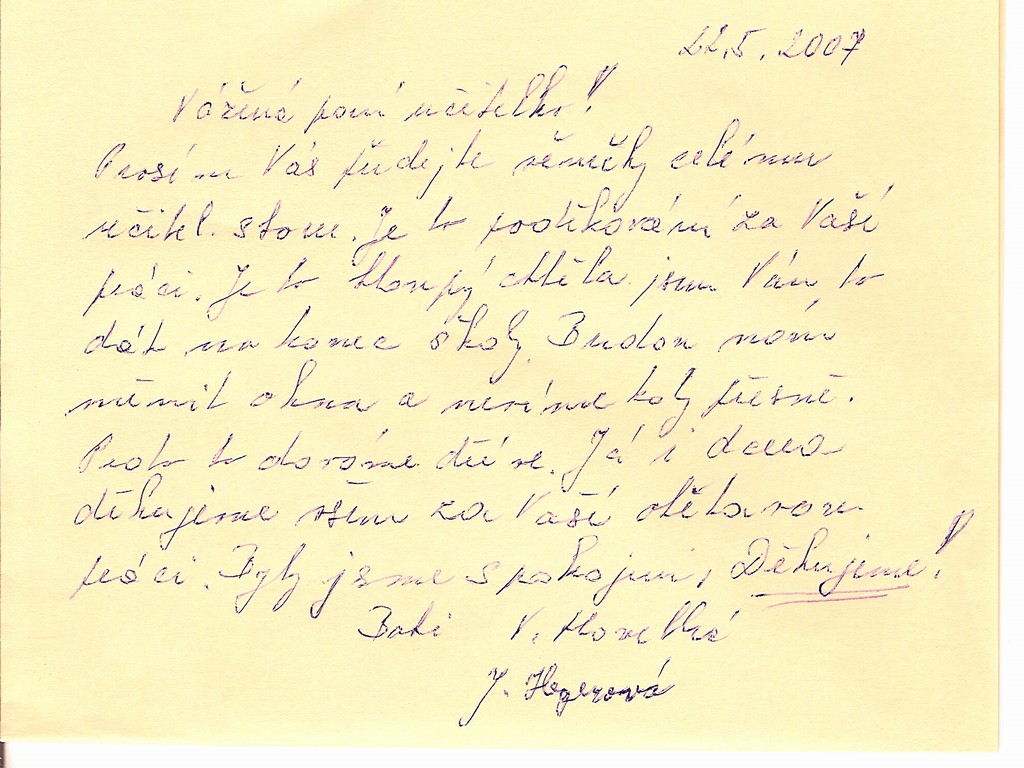 22.5. 2007
Vážená paní učitelko!
Prosím Vás předejte celému
učitel. sboru. Je to poděkování za Vaší
práci. Je to hloupý chtěla jsem Vám to
dát na konec školy. Budou nám
měnit okna a nevíme kdy přesně.
Proto to dáváme dříve. Já i dcera
děkujeme všem za Vaší obětavou
práci. Byly jsme spokojeni, Děkujeme!
V.
J. Hegerová